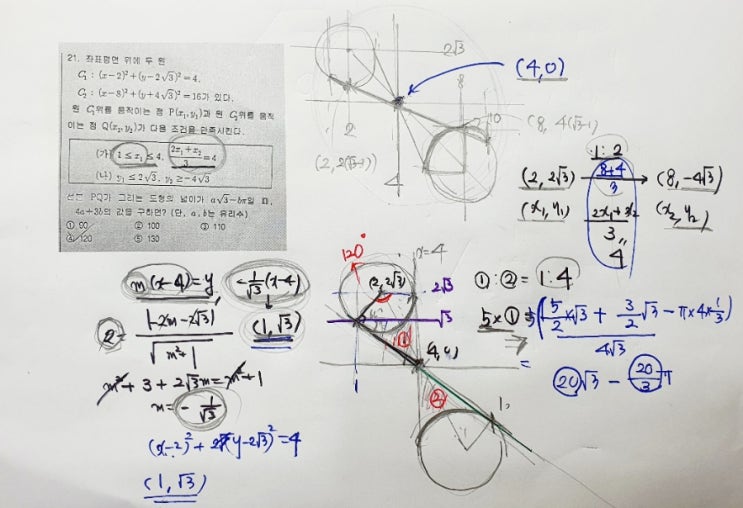 21. 좌표평면 위에 두 원
C₁ : (x-2)²+(y-2√3)²=4,
C₂ : (x-8)²+(y+4√3)²=16가 있다.
원 C₁위를 움직이는 점 P(x₁,y₁)과 원 C₂위를 움직
이는 점 Q(x₂,y₂)가 다음 조건을 만족시킨다.
(가) 1≤x₁≤4, (2x₁+x₂)/3=4
(나) y₁≤2√3, y₂≥-4√3
선분 PQ가 그리는 도형의 넓이가 a√3-bπ일 때,
4a+3b의 값을 구하면? (단, a, b는 유리수)
① 90 ② 100 ③ 110
④ 120 ⑤ 130
2√3
(4,0)
8
2
10
(8, 4(√3-1)
(2, 2(√3-1))
4
1:2
(2, 2√3) (8+4)/3 (8, -4√3)
(x₁, y₁) (2x₁+x₂)/3 (x₂, y₂)
"
4
m(x-4)=y, -1/√3(x-4)
(1, √3)
2= |-2m-2√3|/√(m²+1)
m²+3+2√3m=m²+1
m=-1/√3
(x-2)²+(y-2√3)²=4
(1, √3)
120°
x=4
(2, 2√3)
2√3
√3
①
1
②
①:②=1:4
5×① 5(5/2×√3+3/2√3-π×4×1/3)
4√3
= 20√3-20/3π